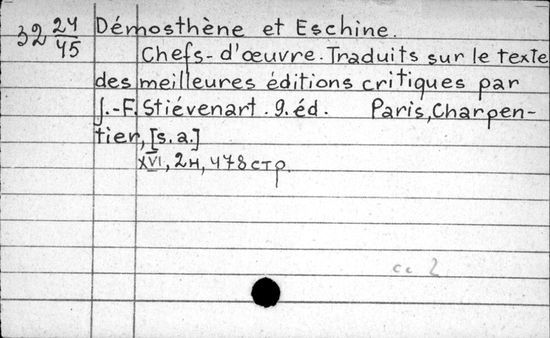 32 24/45 Démosthène et Eschine.
Chefs-d'œuvre. Traduits sur le texte
des meilleures éditions critiques par
J.-F. Stiévenart. 9. éd. Paris, Charpen-
tier, [s.a.]
XVI, 2н, 478 стр.
сс 2